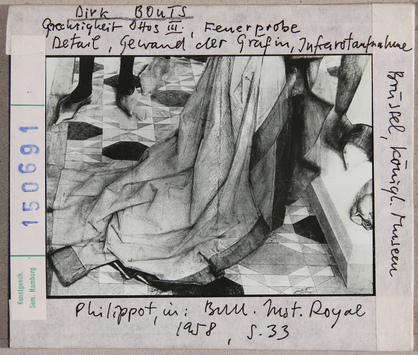 Dirk BOUTS
Gerechtigkeit Ottos III., Feuerprobe
Detail, Gewand der Gräfin, Infrarotaufnahme
Brüssel, Königl. Museen
150691
Kunstgesch.
Sem. Hamburg
Philippot, in: Bull. Inst. Royal
1958, S. 33